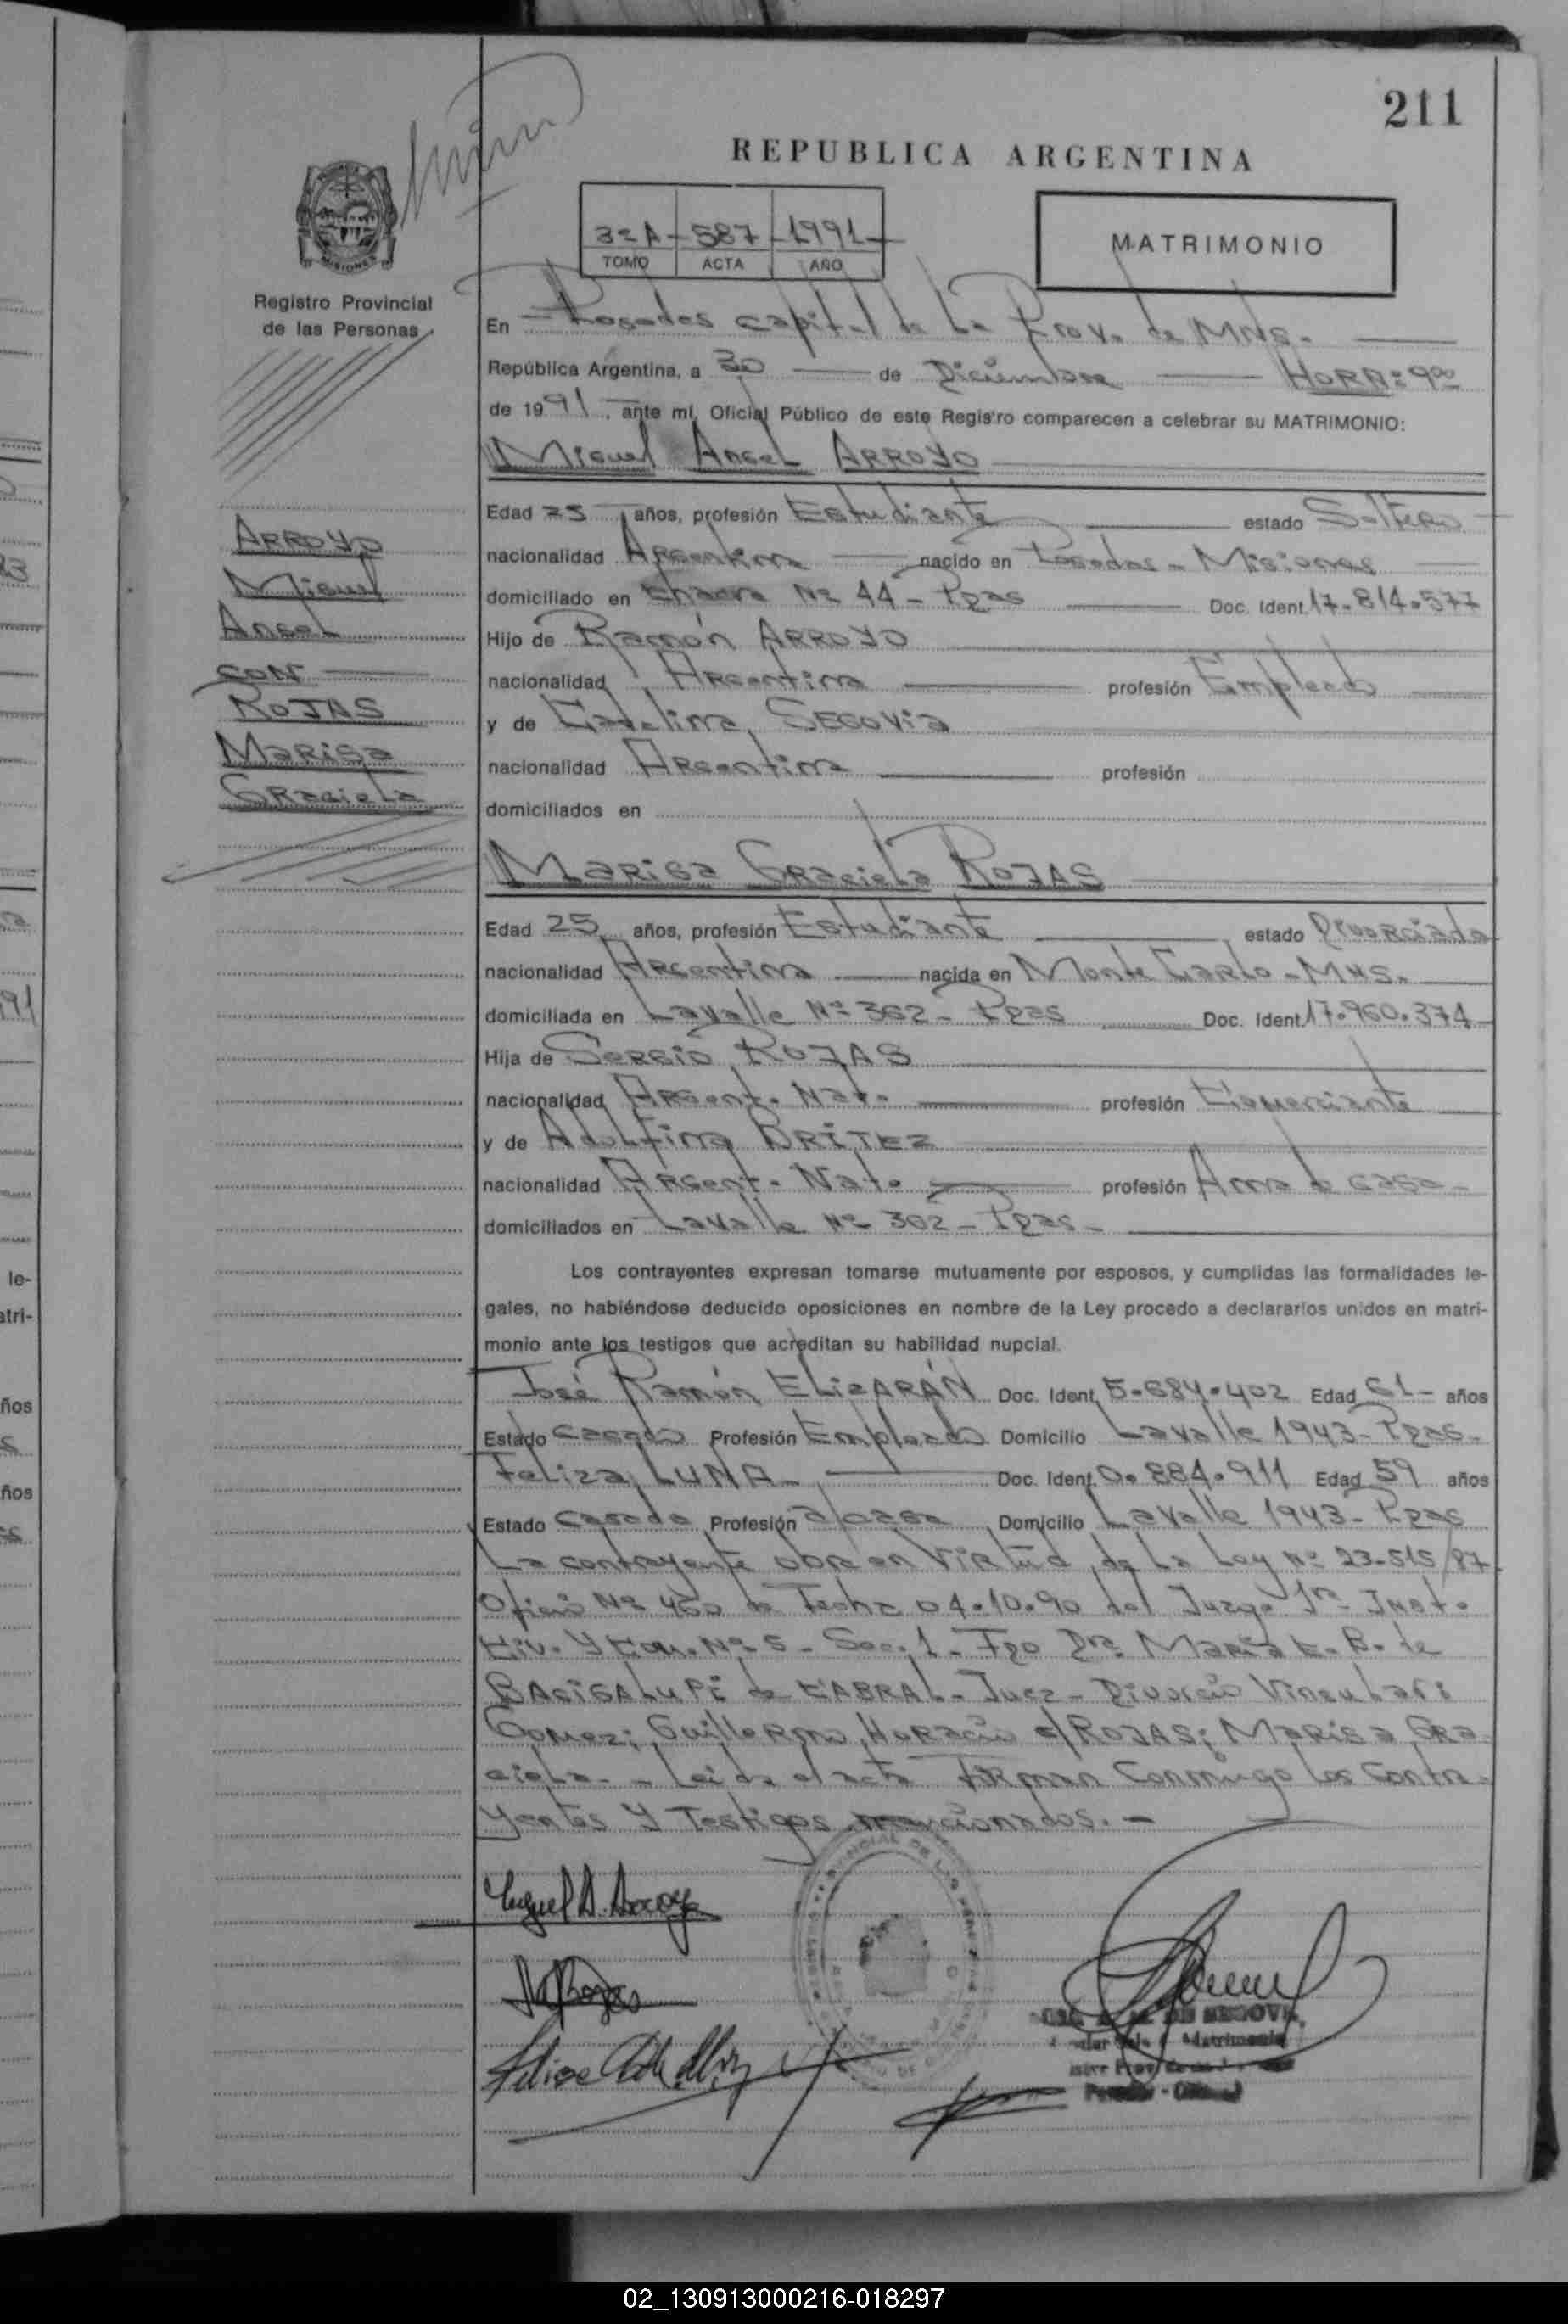 211
REPUBLICA ARGENTINA
3º A - 587 - 1991
TOMO ACTA AÑO
MATRIMONIO
MISIONES
Registro Provincial
de las Personas
En Posadas capital de La Prov. de Mnes.
República Argentina, a 30 de Diciembre HORA: 9ºº
de 1991, ante mí, Oficial Público de este Registro comparecen a celebrar su MATRIMONIO:
Miguel Angel ARROYO
ARROYO
Miguel
Angel
CON
ROJAS
Marisa
Graciela
Edad 25 años, profesión Estudiante estado Soltero
nacionalidad Argentina nacido en Posadas - Misiones
domiciliado en Chacra Nº 44 - Pdas Doc. Ident. 17.814.577
Hijo de Ramón ARROYO
nacionalidad Argentina profesión Empleado
y de Catalina SEGOVIA
nacionalidad Argentina profesión
domiciliados en
Marisa Graciela ROJAS
Edad 25 años, profesión Estudiante estado Divorciada
nacionalidad Argentina nacida en Monte Carlo - Mnes.
domiciliada en Lavalle Nº 362 - Pdas Doc. Ident. 17.960.374
Hija de Sergio ROJAS
nacionalidad Argent. Nat. profesión Comerciante
y de Adolfina BRITEZ
nacionalidad Argent. Nat. profesión Ama de casa -
domiciliados en Lavalle Nº 362 - Pdas -
Los contrayentes expresan tomarse mutuamente por esposos, y cumplidas las formalidades le-
gales, no habiéndose deducido oposiciones en nombre de la Ley procedo a declararlos unidos en matri-
monio ante los testigos que acreditan su habilidad nupcial.
José Ramón ELIZARÁN Doc. Ident. 5.684.402 Edad 61 - años
Estado Casado Profesión Empleado Domicilio Lavalle 1943 - Pdas -
Feliza LUNA - Doc. Ident. 0.884.911 Edad 59 años
Estado Casada Profesión a/casa Domicilio Lavalle 1943 - Pdas
La contrayente obra en Virtud de La Ley Nº 23.515/87
Oficio Nº 450 de Fecha 04.10.90 del Juzgo 1ra Inst.
Civ. y Com. Nº 5 - Sec. 1 - Fdo Dra María E. B. de
BACIGALUPI de CABRAL - Juez - Divorcio Vincular:
Gomez; Guillermo Horacio c/ROJAS; Marisa Gra-
ciela. - Leida el acta Firman Conmigo los Contra-
yentes y Testigos mencionados. -
Miguel A. Arroyo
DE SEGOVIA
Matrimonio
02_130913000216-018297